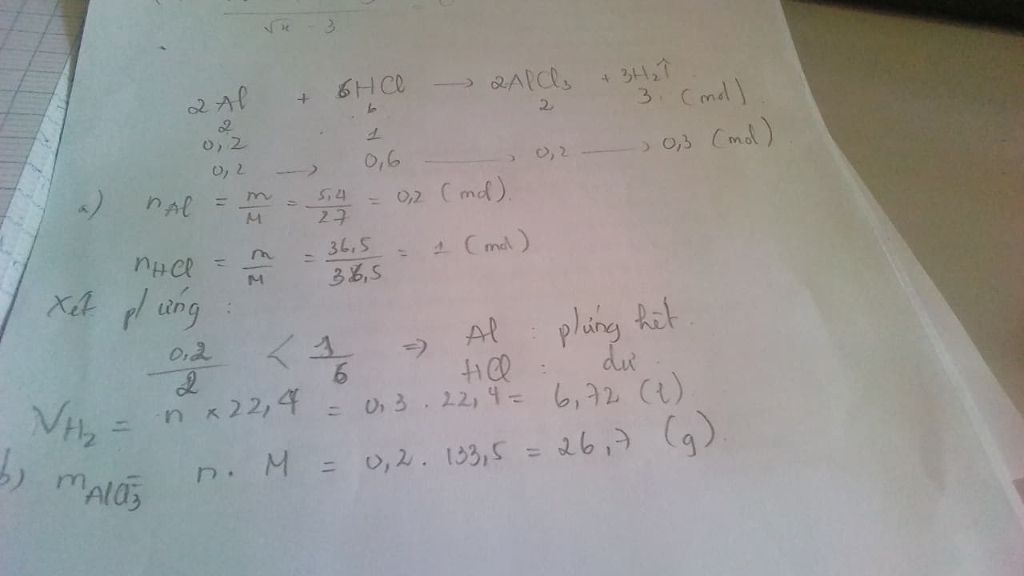 √x - 3
2Al + 6HCl → 2AlCl₃ + 3H₂↑
2 6 2 3 (mol)
0,2 1
0,2 → 0,6 → 0,2 → 0,3 (mol)
a) nAl = m/M = 5,4/27 = 0,2 (mol).
nHCl = m/M = 36,5/36,5 = 1 (mol)
Xét p/ứng :
0,2/2 < 1/6 ⇒ Al : p/ứng hết.
HCl : dư.
VH₂ = n × 22,4 = 0,3 . 22,4 = 6,72 (l)
b) mAlCl₃ = n . M = 0,2 . 133,5 = 26,7 (g).